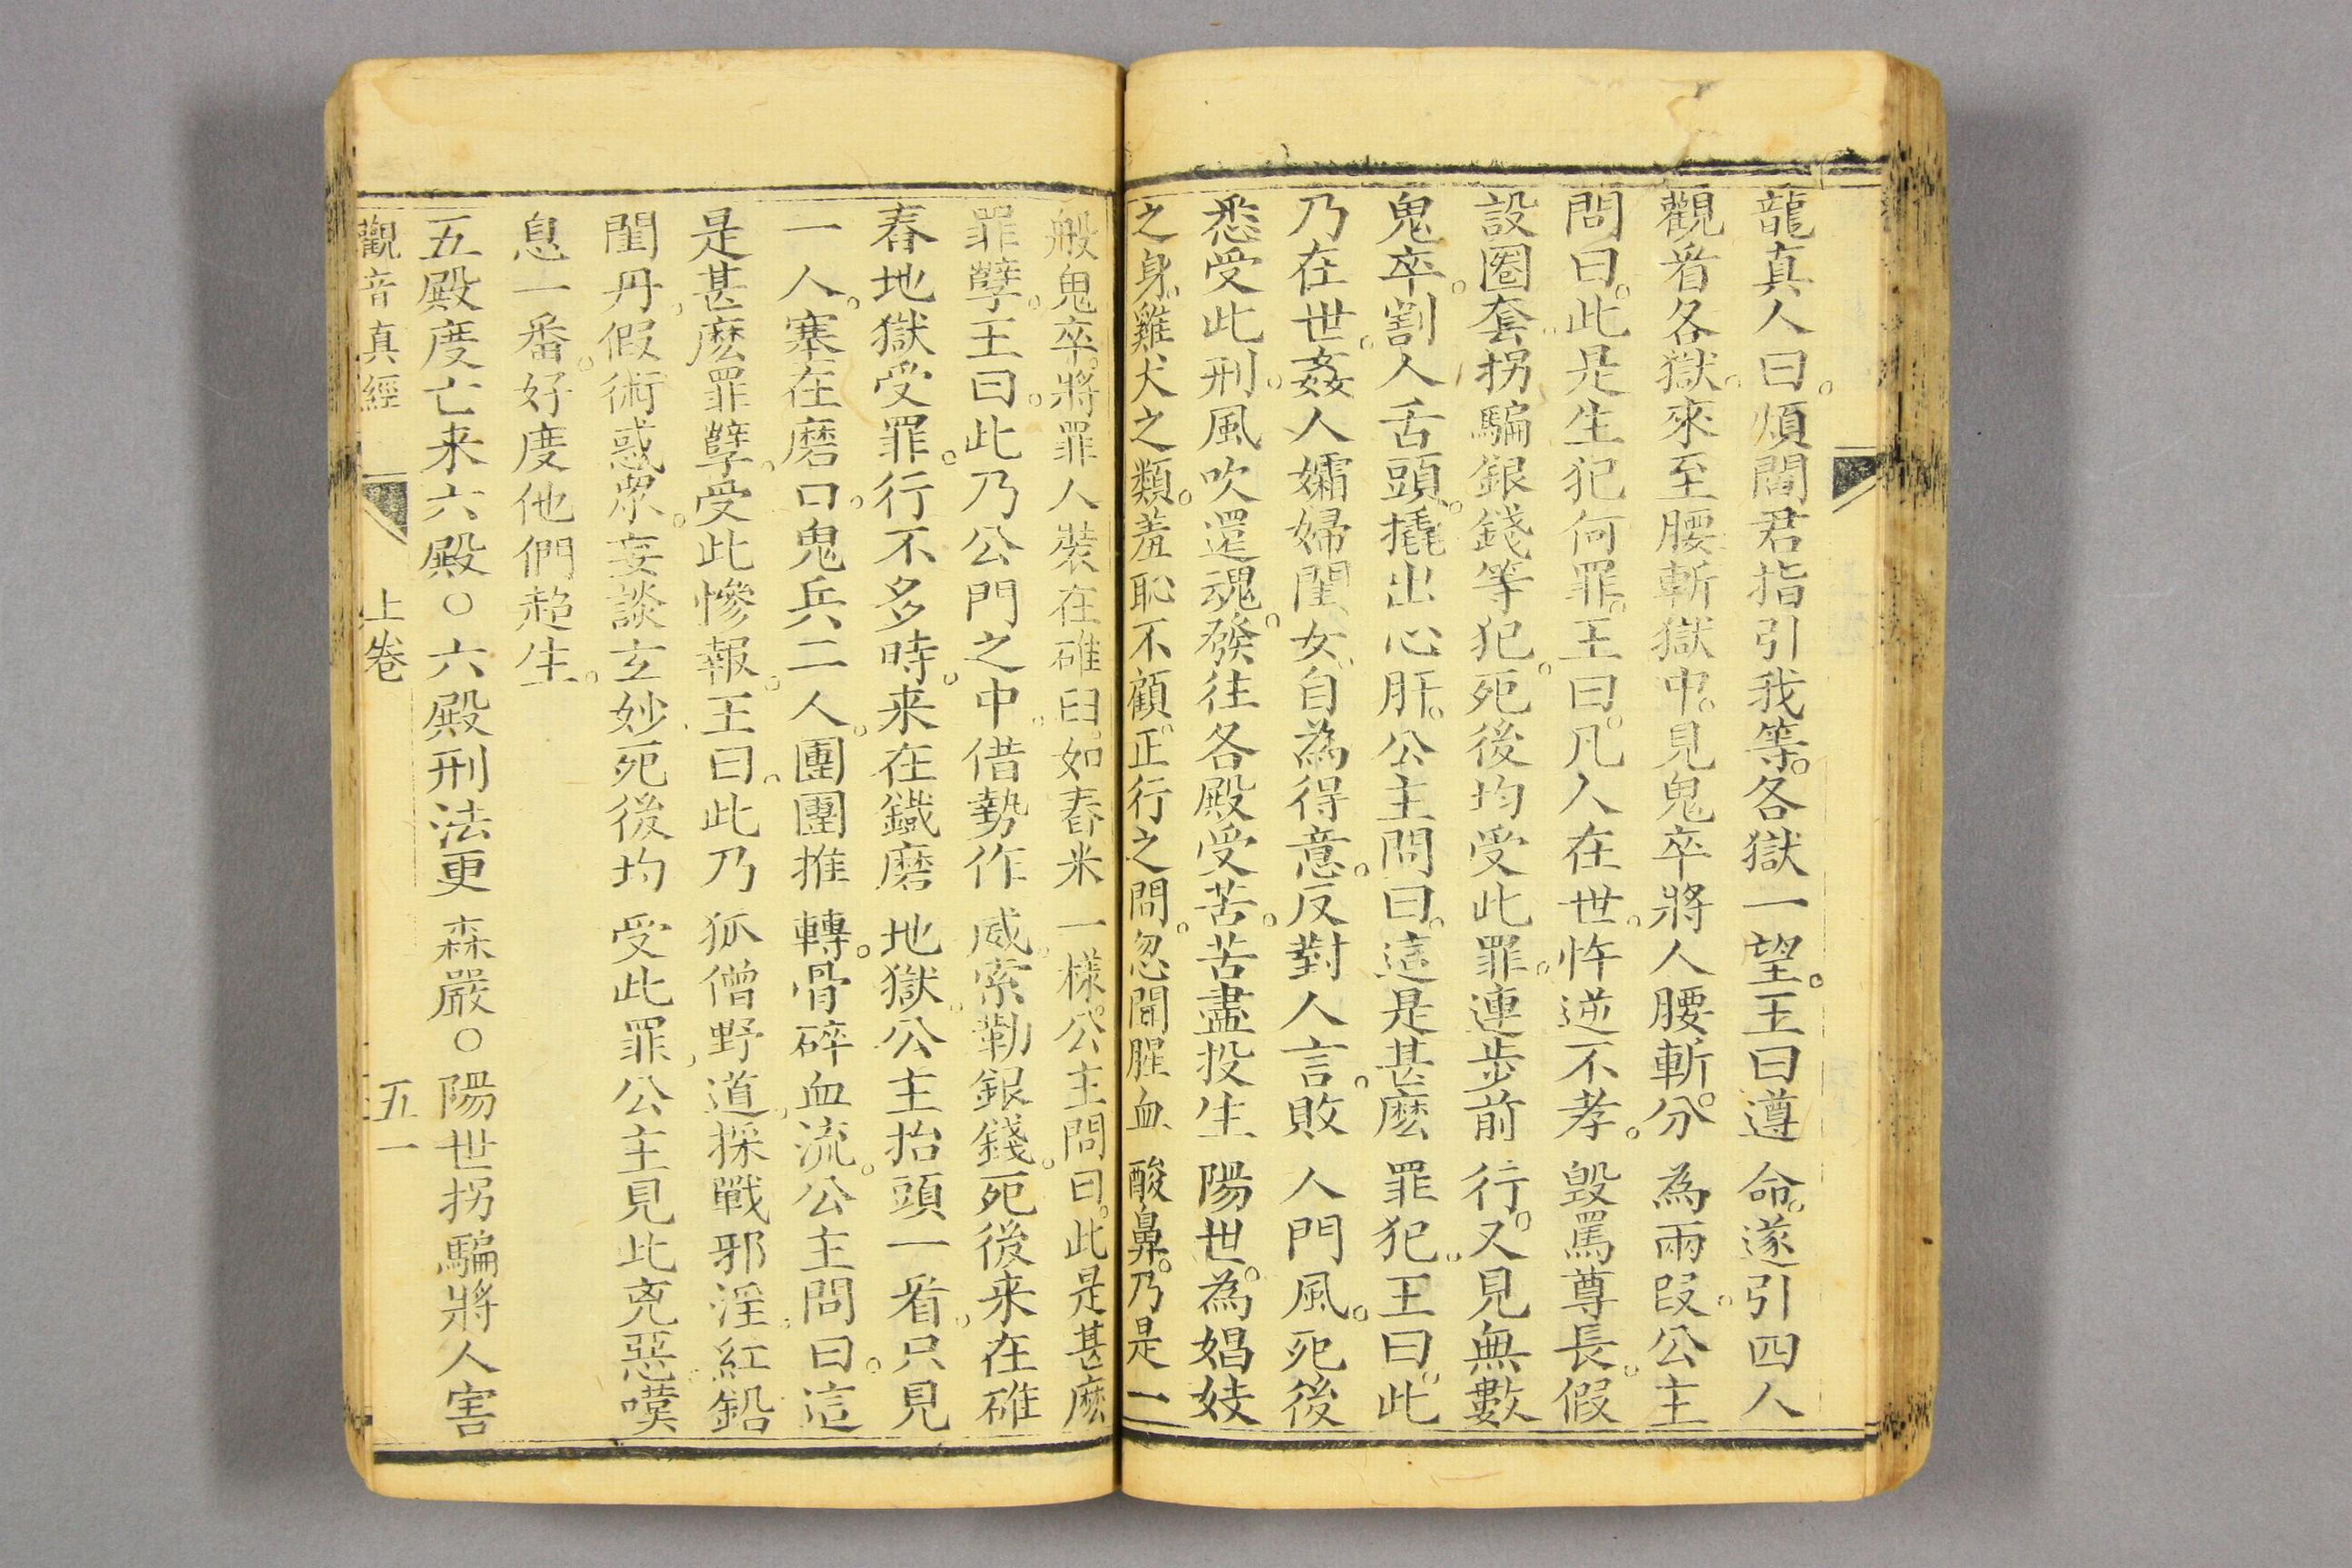 龍真人曰。煩閻君指引我等。各獄一望。王曰遵命。遂引四人
觀看各獄。來至腰斬獄中。見鬼卒將人腰斬。分為兩段。公主
問曰。此是生犯何罪。王曰。凡人在世。忤逆不孝。毀罵尊長。假
設圈套。拐騙銀錢等犯。死後均受此罪。連步前行。又見無數
鬼卒。割人舌頭。撬出心肝。公主問曰。這是甚麽罪犯。王曰。此
乃在世。姦人孀婦閨女、自為得意。反對人言。敗人門風。死後
悉受此刑。風吹還魂。發往各殿受苦。苦盡投生陽世。為娼妓
之身。雞犬之類。羞恥不顧。正行之間。忽聞腥血酸鼻。乃是一
般鬼卒。將罪人裝在碓臼。如舂米一樣。公主問曰。此是甚麽
罪孽。王曰。此乃公門之中。借勢作威。索勒銀錢。死後来在碓
舂地獄受罪。行不多時。来在鐵磨地獄。公主抬頭一看、只見
一人。塞在磨口。鬼兵二人。團團推轉。骨碎血流。公主問曰。這
是甚麽罪孽。受此慘報。王曰。此乃狐僧野道、採戰邪淫。紅鉛
閨丹、假術惑眾。妄談玄妙、死後均受此罪、公主見此兇惡、嘆
息一番。好度他們超生。
五殿度亡来六殿○六殿刑法更森嚴○陽世拐騙將人害
觀音真經 上卷 五一